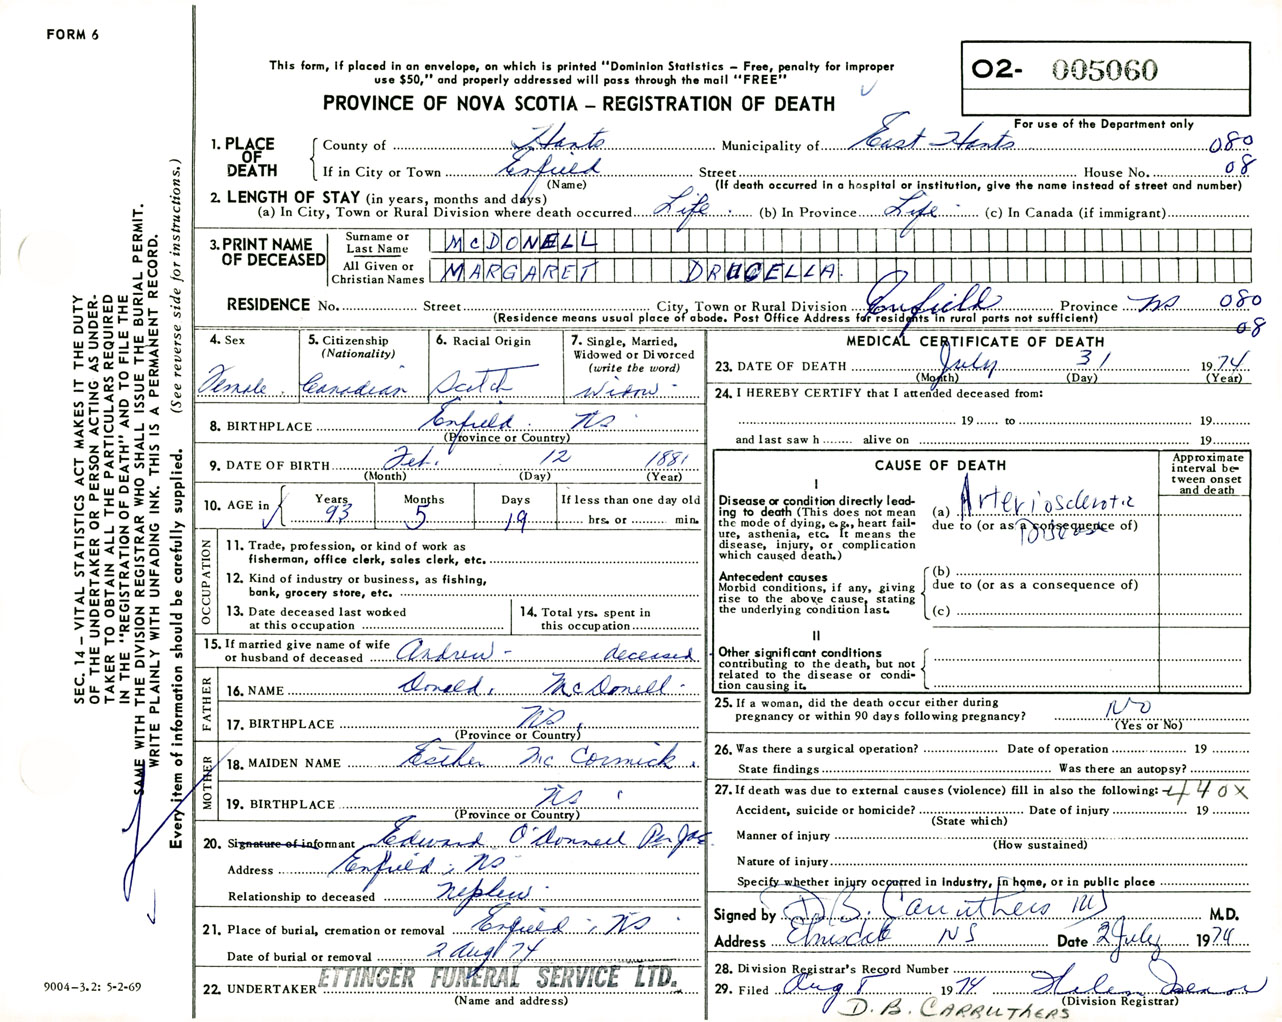 FORM 6
This form, if placed in an envelope, on which is printed "Dominion Statistics – Free, penalty for improper
use $50," and properly addressed will pass through the mail "FREE"
PROVINCE OF NOVA SCOTIA – REGISTRATION OF DEATH
O2- 005060
For use of the Department only
1. PLACE OF DEATH
County of Hants Municipality of East Hants 080
If in City or Town Enfield Street House No. 08
(Name) (If death occurred in a hospital or institution, give the name instead of street and number)
2. LENGTH OF STAY (in years, months and days)
(a) In City, Town or Rural Division where death occurred Life (b) In Province Life (c) In Canada (if immigrant)
3. PRINT NAME OF DECEASED
Surname or Last Name McDONELL
All Given or Christian Names MARGARET DRUCELLA.
RESIDENCE No. Street City, Town or Rural Division Enfield Province NS 080
(Residence means usual place of abode. Post Office Address for residents in rural parts not sufficient) 08
4. Sex
Female.
5. Citizenship
(Nationality)
Canadian
6. Racial Origin
Scotch
7. Single, Married,
Widowed or Divorced
(write the word)
Widow
8. BIRTHPLACE Enfield NS
(Province or Country)
9. DATE OF BIRTH Feb. 12 1881
(Month) (Day) (Year)
10. AGE in
Years Months Days If less than one day old
93 5 19 hrs. or min.
OCCUPATION
11. Trade, profession, or kind of work as
fisherman, office clerk, sales clerk, etc.
12. Kind of industry or business, as fishing,
bank, grocery store, etc.
13. Date deceased last worked
at this occupation
14. Total yrs. spent in
this occupation
15. If married give name of wife
or husband of deceased Andrew - deceased
FATHER
16. NAME Donald. McDonell
17. BIRTHPLACE NS
(Province or Country)
MOTHER
18. MAIDEN NAME Esther Mc Cormick.
19. BIRTHPLACE NS
(Province or Country)
20. Signature of informant Edward O'Donnell Per
Address Enfield, NS
Relationship to deceased Nephew
21. Place of burial, cremation or removal Enfield, NS
Date of burial or removal 2 Aug 74
22. UNDERTAKER ETTINGER FUNERAL SERVICE LTD.
(Name and address)
MEDICAL CERTIFICATE OF DEATH
23. DATE OF DEATH July 31 1974
(Month) (Day) (Year)
24. I HEREBY CERTIFY that I attended deceased from:
19 to 19
and last saw h alive on 19
CAUSE OF DEATH
Approximate
interval be-
tween onset
and death
I
Disease or condition directly lead-
ing to death (This does not mean
the mode of dying, e.g., heart fail-
ure, asthenia, etc. It means the
disease, injury, or complication
which caused death.)
(a) Arteriosclerotic
due to (or as a consequence of)
Disease
Antecedent causes
Morbid conditions, if any, giving
rise to the above cause, stating
the underlying condition last.
(b)
due to (or as a consequence of)
(c)
II
Other significant conditions
contributing to the death, but not
related to the disease or condi-
tion causing it.
25. If a woman, did the death occur either during
pregnancy or within 90 days following pregnancy? No
(Yes or No)
26. Was there a surgical operation? Date of operation 19
State findings Was there an autopsy?
27. If death was due to external causes (violence) fill in also the following: 440X
Accident, suicide or homicide? Date of injury 19
(State which)
Manner of injury
(How sustained)
Nature of injury
Specify whether injury occurred in Industry, in home, or in public place
Signed by D. B. Carruthers MD M.D.
Address Elmsdale NS Date 2 July 1974
28. Division Registrar's Record Number
29. Filed Aug 8 1974 Helen
(Division Registrar)
D. B. CARRUTHERS
SEC. 14 – VITAL STATISTICS ACT MAKES IT THE DUTY
OF THE UNDERTAKER OR PERSON ACTING AS UNDER-
TAKER TO OBTAIN ALL THE PARTICULARS REQUIRED
IN THE "REGISTRATION OF DEATH" AND TO FILE THE
SAME WITH THE DIVISION REGISTRAR WHO SHALL ISSUE THE BURIAL PERMIT.
WRITE PLAINLY WITH UNFADING INK. THIS IS A PERMANENT RECORD.
Every item of information should be carefully supplied. (See reverse side for instructions.)
9004-3.2: 5-2-69